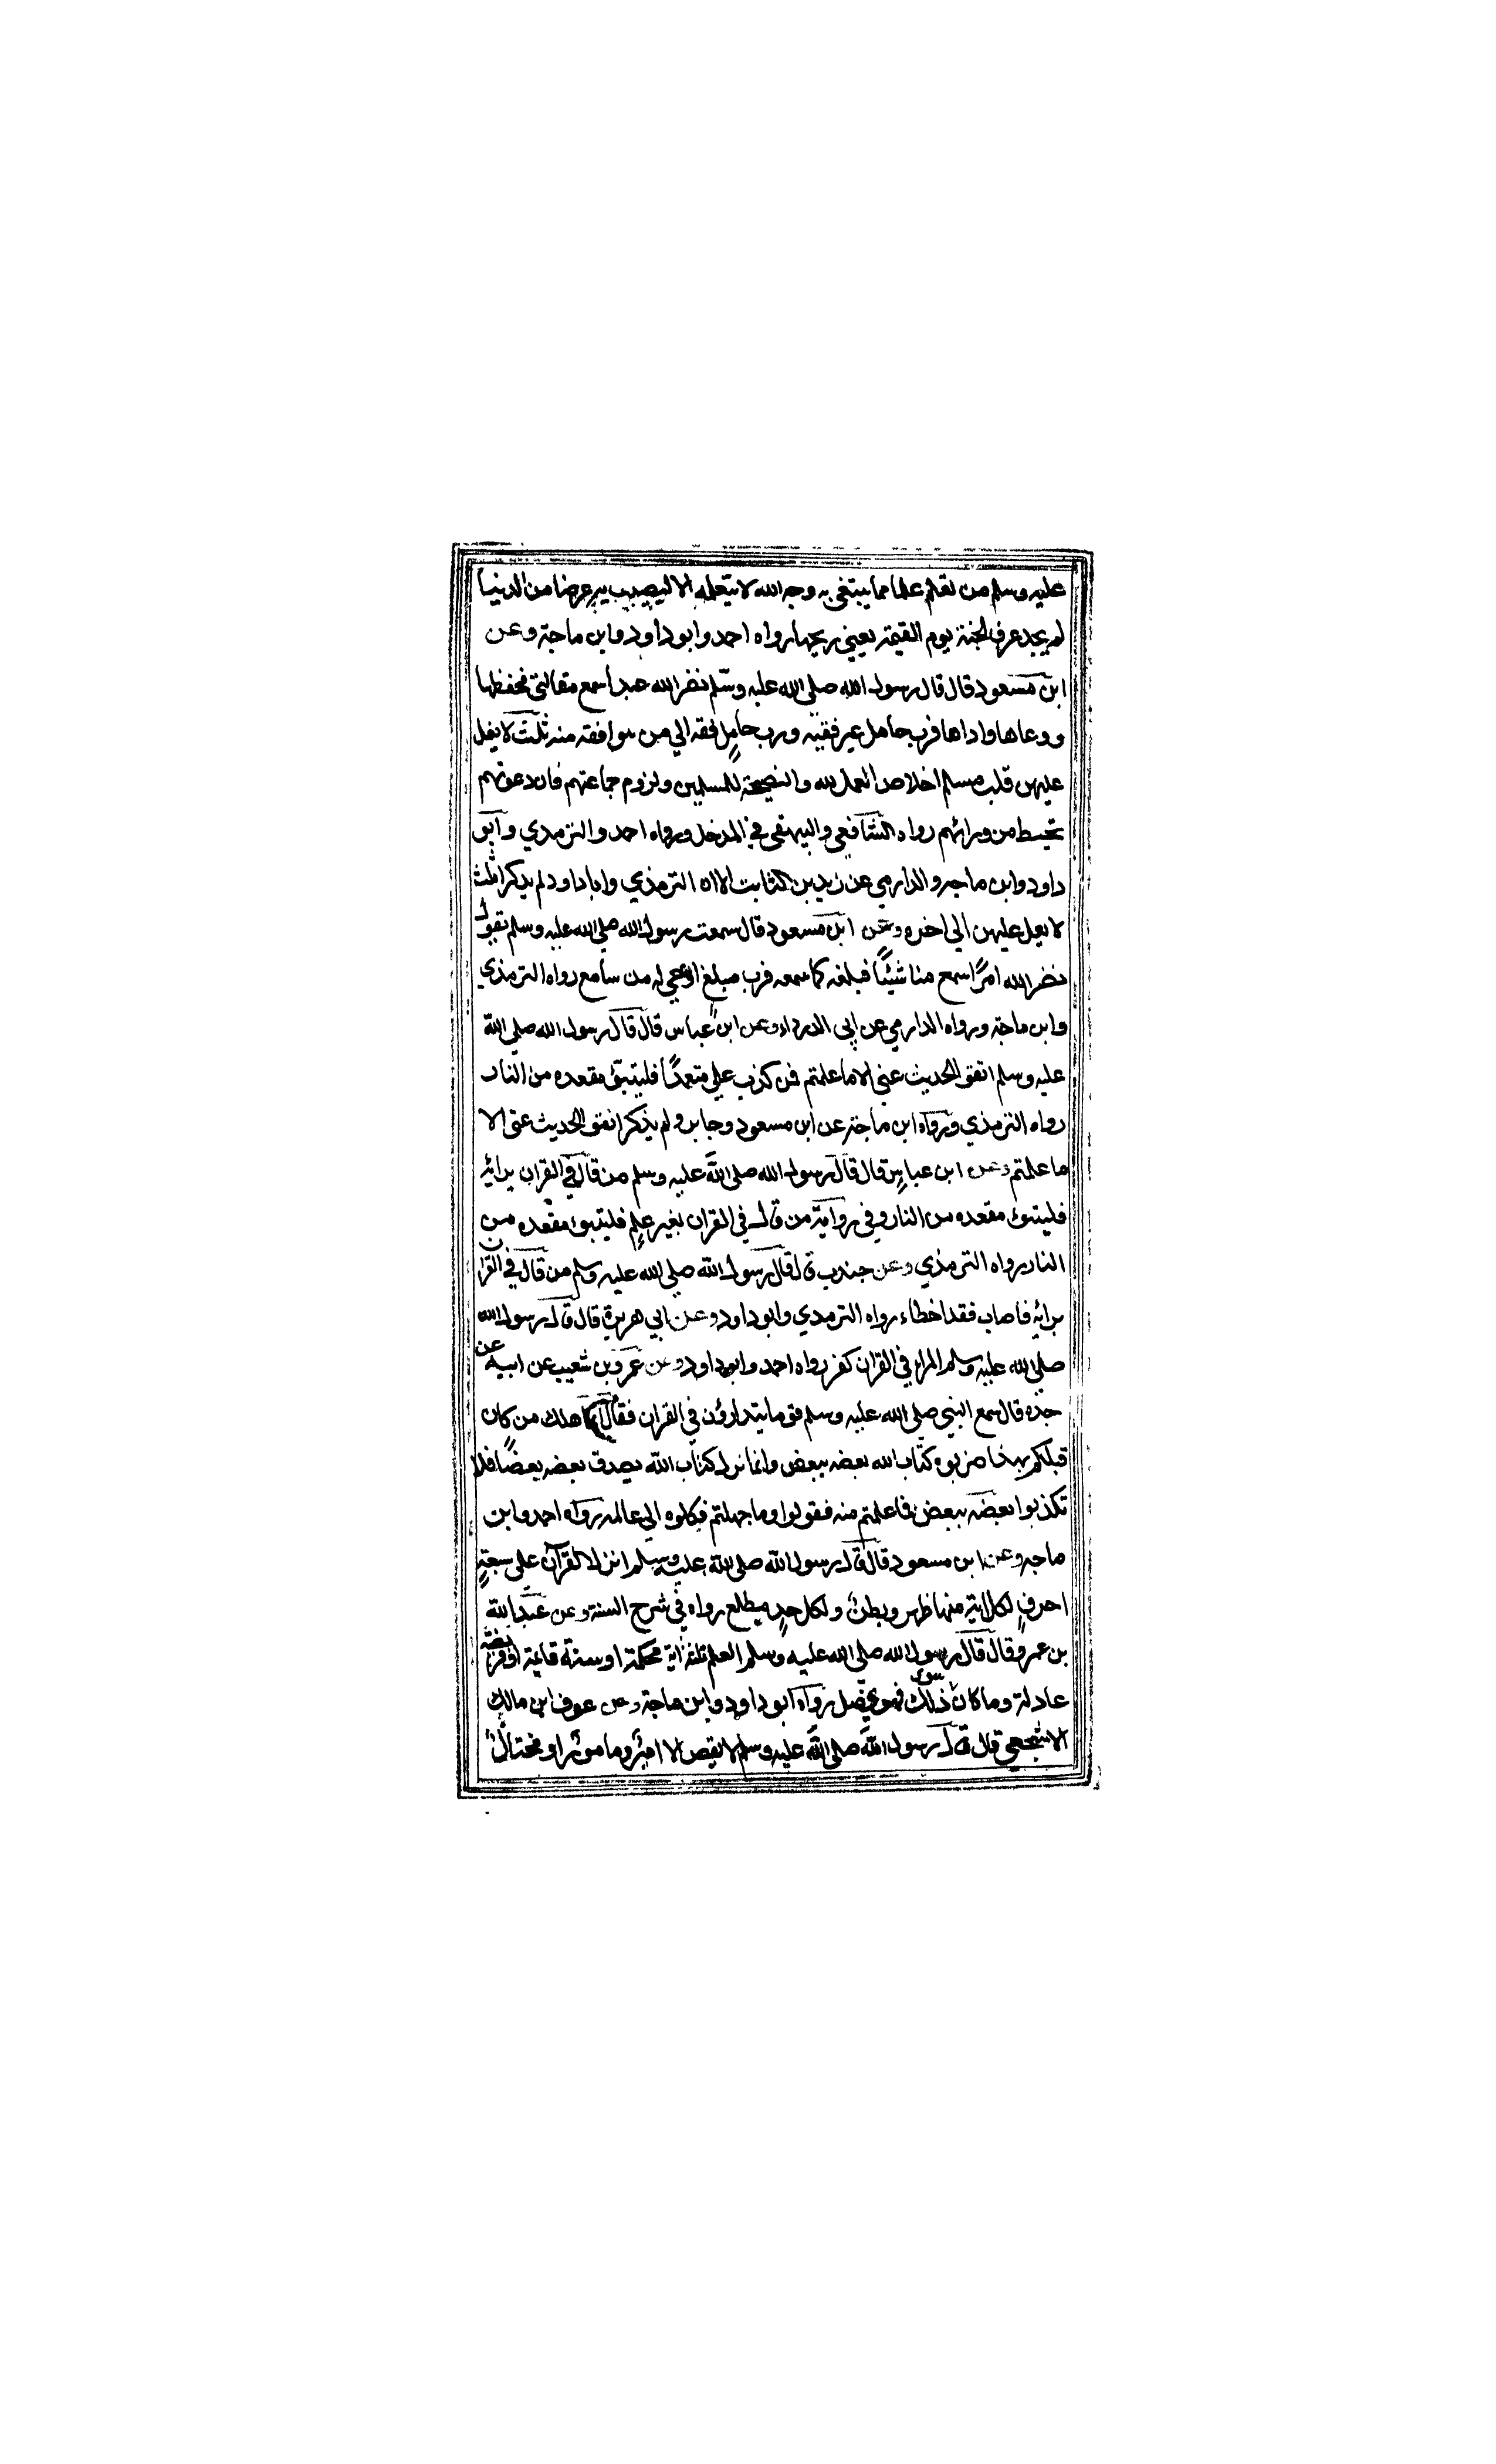 عليه وسلم من تعلم علما مما يبتغى به وجه الله لا يتعلمه الا ليصيب به عرضا من الدنيا
لم يجد عرف الجنة يوم القيمة يعني ريحها رواه احمد وابو داود وابن ماجة وعن
ابن مسعود قال قال رسول الله صلى الله عليه وسلم نضر الله عبدا سمع مقالتي فحفظها
ووعاها واداها فرب حامل غير فقيه ورب حامل فقه الي من هو افقه منه ثلث لا يغل
عليهن قلب مسلم اخلاص العمل لله والنصيحة للمسلمين ولزوم جماعتهم فان دعوتهم
تحيط من ورائهم رواه الشافعي والبيهقي في المدخل ورواه احمد والترمذي وابو
داود وابن ماجه والدارمي عن زيد بن ثابت الا ان الترمذي وابا داود لم يذكرا ثلث
لا يغل عليهن الي اخره وعن ابن مسعود قال سمعت رسول الله صلي الله عليه وسلم يقول
نضر الله امرًا سمع منا شيئًا فبلغه كما سمعه فرب مبلغ اوعي له من سامع رواه الترمذي
وابن ماجة ورواه الدارمي عن ابي الدرداء وعن ابن عباس قال قال رسول الله صلي الله
عليه وسلم اتقو الحديث عني الا ما علمتم فمن كذب علي متعمدًا فليتبوّئ مقعده من النار
رواه الترمذي ورواه ابن ماجة عن ابن مسعود وجابر ولم يذكر اتقو الحديث عني الا
ما علمتم وعن ابن عباسٍ قال قال رسول الله صلى الله عليه وسلم من قال في القران برائه
فليتبوئ مقعده من النار وفي رواية من قال في القران بغير علمٍ فليتبوئ مقعده من
النار رواه الترمذي وعن جندب قال قال رسول الله صلي الله عليه وسلم من قال في القران
برائه فاصاب فقد اخطاء رواه الترمذي وابو داود وعن ابي هريرة قال قال رسول الله
صلي الله عليه وسلم المراء في القران كفر رواه احمد وابو داود وعن عمرو بن شعيب عن ابيه عن
جده قال سمع النبي صلي الله عليه وسلم قوما يتدارؤن في القران فقال انما هلك من كان
قبلكم بهذا ضربوه كتاب الله بعضه ببعض وانما نزل كتاب الله يصدق بعضه بعضًا فلا
تكذبوا بعضه ببعض فما علمتم منه فقولوا وما جهلتم فكلوه الي عالمه رواه احمد وابن
ماجه وعن ابن مسعود قال قال رسول الله صلى الله عليه وسلم انزل القرآن على سبعةِ
احرفٍ لكل اية منها ظهر وبطنٌ ولكل حدٍ مطلع رواه في شرح السنة وعن عبد الله
بن عمرو قال قال رسول الله صلي الله عليه وسلم العلم ثلثة اية محكمة او سنة قائمة او فريضة
عادلة وما كان سوى ذلك فهو فضل رواه ابو داود وابن ماجة وعن عوف ابن مالك
الاشجعي قال قال رسول الله صلى الله عليه وسلم لا يقص الا اميرٌ وما مورٌ او مختالٌ